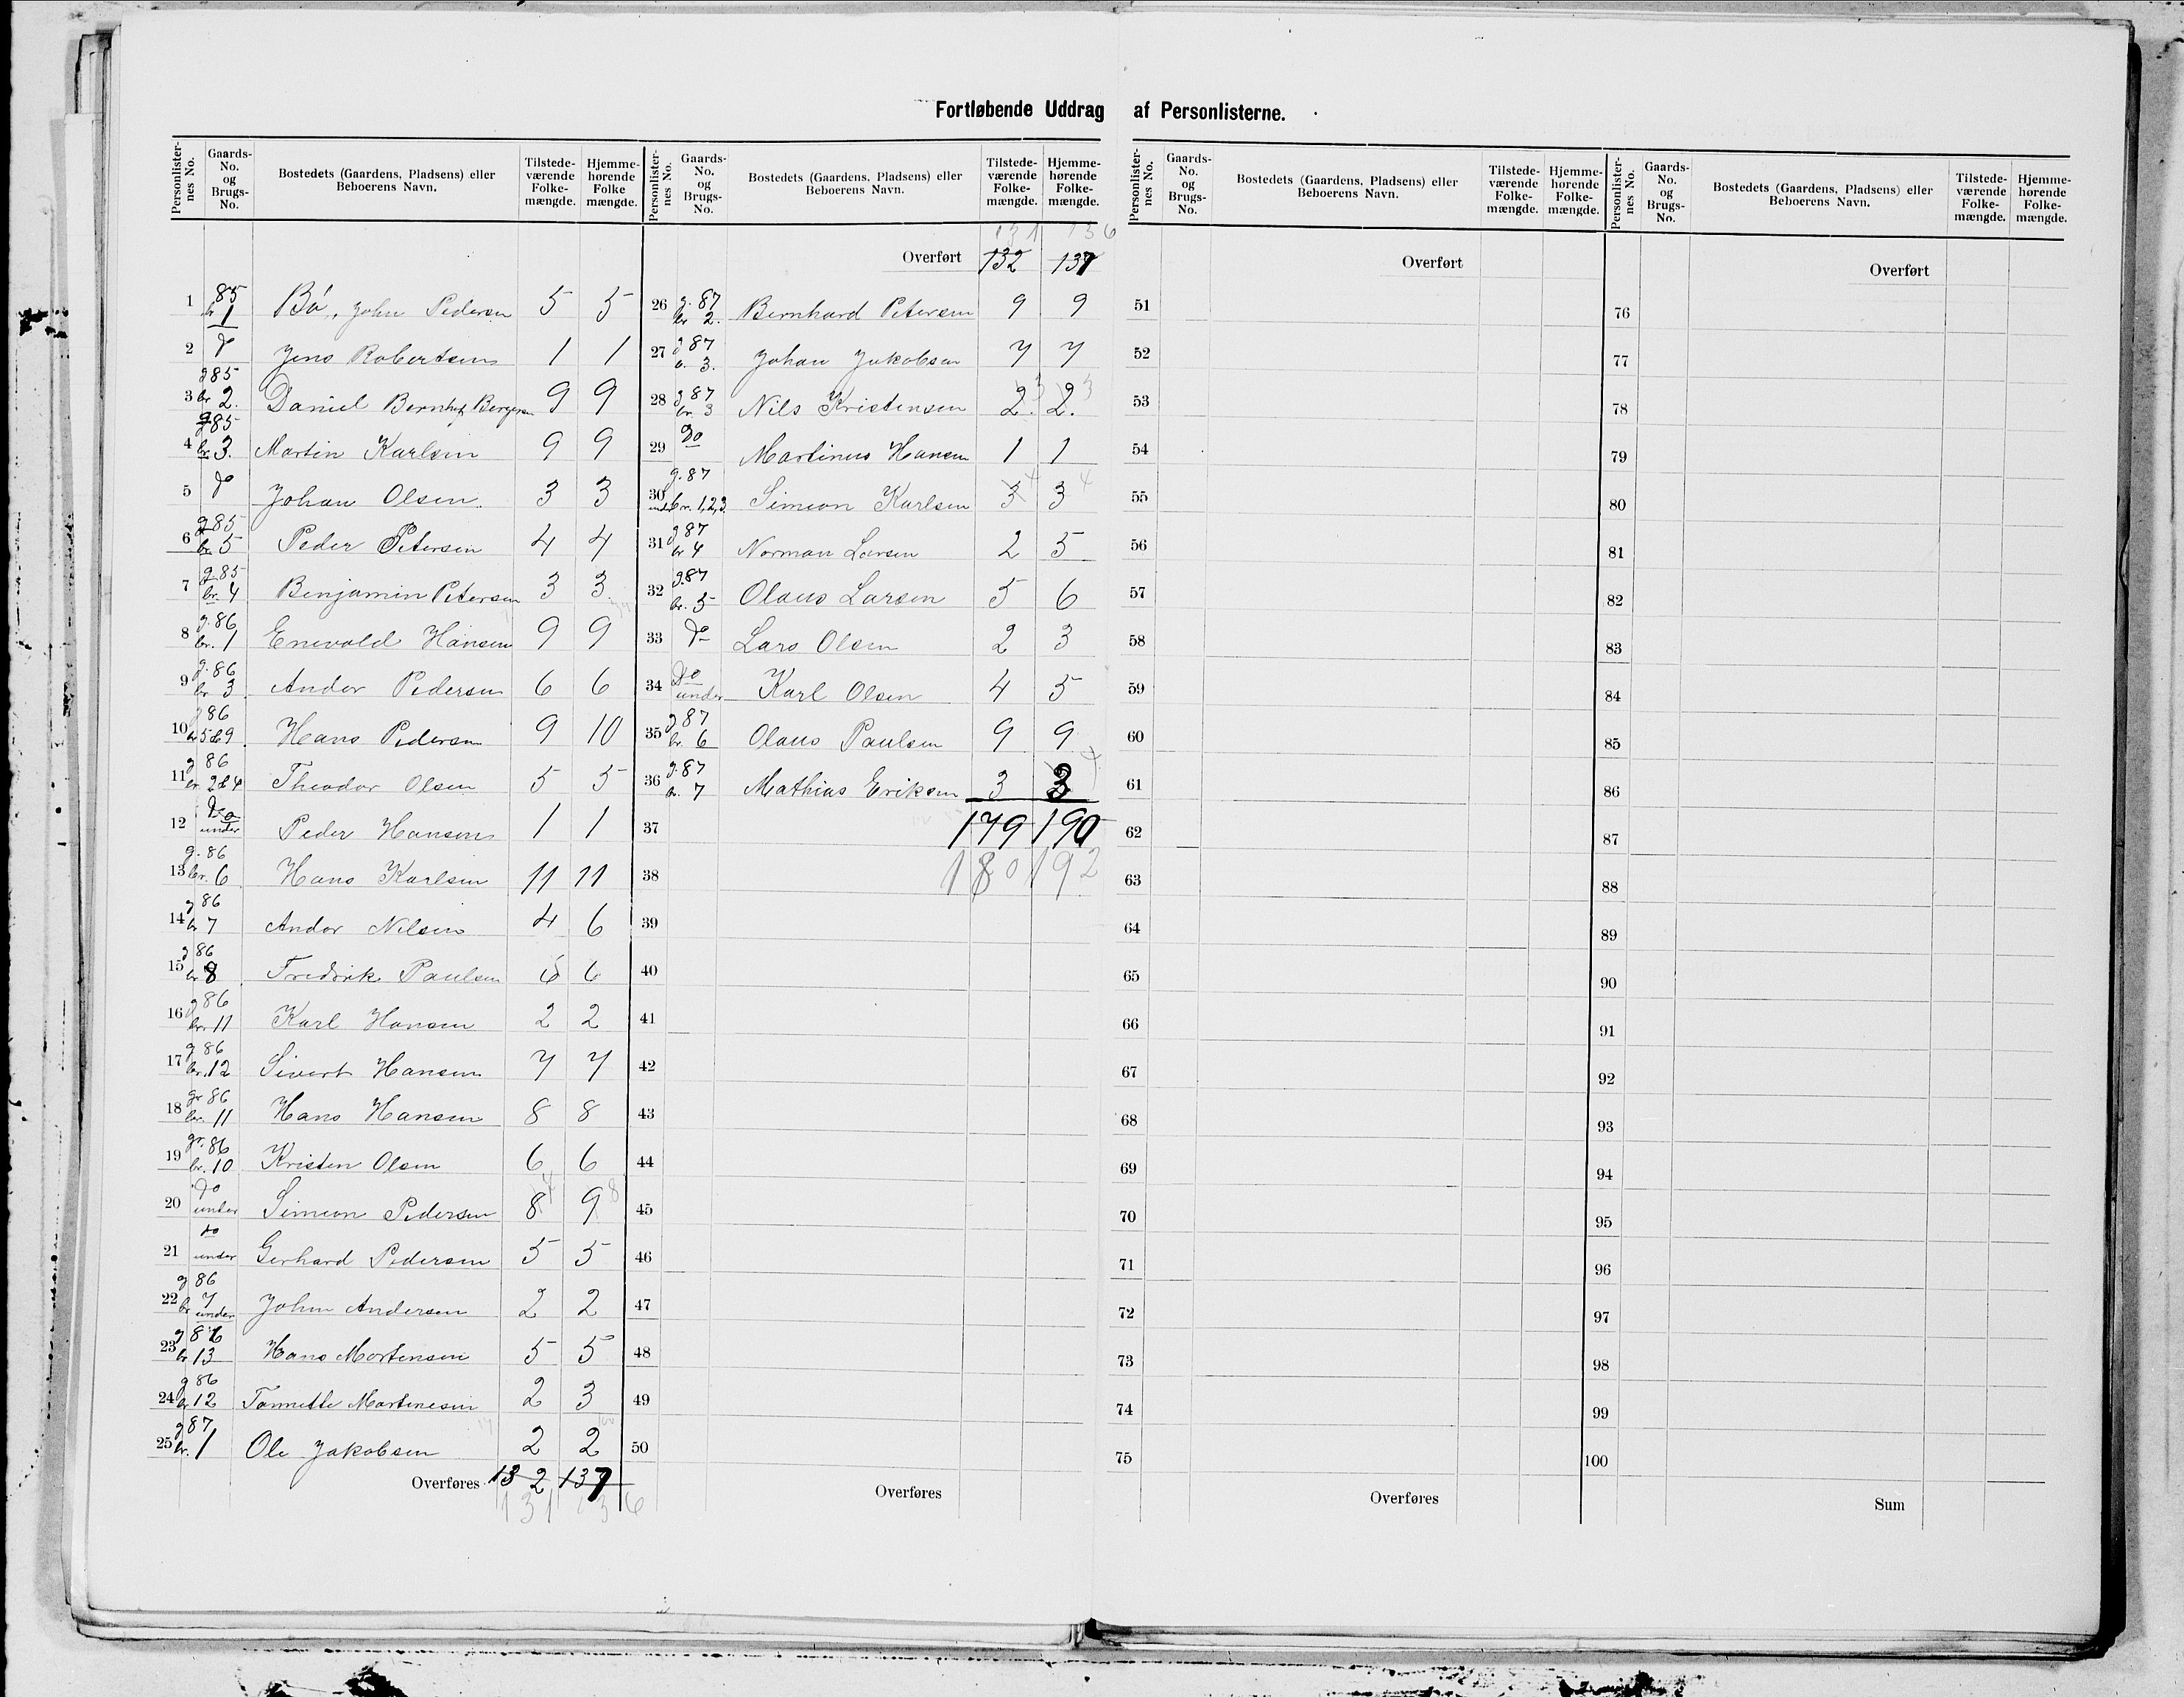 Fortløbende Uddrag af Personlisterne.
Personlister-nes No. Gaards-No. og Brugs-No. Bostedets (Gaardens, Pladsens) eller Beboerens Navn. Tilstede-værende Folke-mængde. Hjemme-hørende Folke mængde.
1 85 b 1 Bö, John Pedersen 5 5
2 do Jens Robertsen 1 1
3 g 85 br 2. Daniel Bernhof Bergersen 9 9
4 g 85 br. 3. Martin Karlsen 9 9
5 do Johan Olsen 3 3
6 g 85 br 5 Peder Petersen 4 4
7 g. 85 br. 4 Benjamin Petersen 3 3
8 g. 86 br. 1 Enevold Hansen 9 9
9 g. 86 br 3 Andor Pedersen 6 6
10 g 86 br 5 & 9 Hans Pedersen 9 10
11 g 86 br. 2 & 4 Theodor Olsen 5 5
12 Do under Peder Hansen 1 1
13 g. 86 br. 6 Hans Karlsen 11 11
14 g 86 br 7 Andor Nilsen 4 6
15 g 86 br 8 Fredrik Paulsen 6 6
16 g 86 br. 11 Karl Hansen 2 2
17 g 86 br. 12 Sivert Hansen 7 7
18 gr 86 br. 11 Hans Hansen 8 8
19 gr. 86 br. 10 Kristen Olsen 6 6
20 Do under Simeon Pedersen 8 7 9 8
21 do under Gerhard Pedersen 5 5
22 g 86 br 7 under John Andersen 2 2
23 g 86 br 13 Hans Mortensen 5 5
24 g 86 br 12 Tannette Martinesen 2 3
25 g 87 br. 1 Ole Jakobsen 2 2
Overføres 132 137
131 136
Personlister-nes No. Gaards-No. og Brugs-No. Bostedets (Gaardens, Pladsens) eller Beboerens Navn. Tilstede-værende Folke-mængde. Hjemme-hørende Folke-mængde.
131 136
Overført 132 137
26 g. 87 br 2. Bernhard Petersen 9 9
27 g 87 b. 3. Johan Jakobsen 7 7
28 g 87 br. 3 Nils Kristensen 2. 3 2. 3
29 Do Martinus Hansen 1 1
30 g. 87 under br. 1,2,3. Simeon Karlsen 3 4 3 4
31 g 87 br 4 Norman Larsen 2 5
32 g. 87 br. 5 Olaus Larsen 5 6
33 do Lars Olsen 2 3
34 Do under Karl Olsen 4 5
35 g. 87 br. 6 Olaus Paulsen 9 9
36 g. 87 br. 7 Mathias Eriksen 3 3 4
37 179 190
38 180 192
39
40
41
42
43
44
45
46
47
48
49
50
Overføres
Personlister-nes No. Gaards-No. og Brugs-No. Bostedets (Gaardens, Pladsens) eller Beboerens Navn. Tilstede-værende Folke-mængde. Hjemme-hørende Folke-mængde.
Overført
51
52
53
54
55
56
57
58
59
60
61
62
63
64
65
66
67
68
69
70
71
72
73
74
75
Overføres
Personlister-nes No. Gaards-No. og Brugs-No. Bostedets (Gaardens, Pladsens) eller Beboerens Navn. Tilstede-værende Folke-mængde. Hjemme-hørende Folke-mængde.
Overført
76
77
78
79
80
81
82
83
84
85
86
87
88
89
90
91
92
93
94
95
96
97
98
99
100
Sum